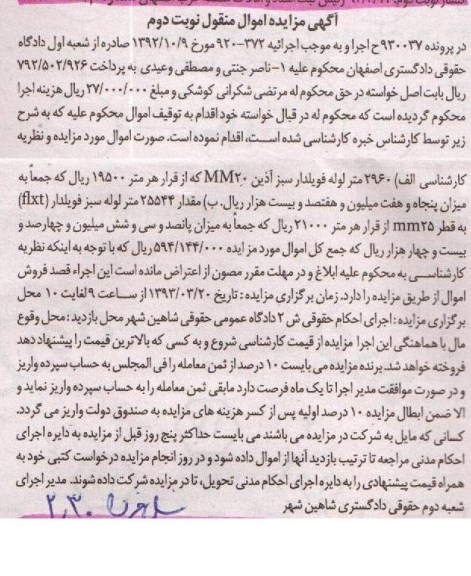 آگهی مزایده اموال منقول نوبت دوم
در پرونده ۹۳۰۰۳۷ح اجرا و به موجب اجرائیه ۳۷۲-۹۲۰ مورخ ۱۳۹۲/۱۰/۹ صادره از شعبه اول دادگاه
حقوقی دادگستری اصفهان محکوم علیه ۱-ناصر جنتی و مصطفی وعیدی به پرداخت ۷۹۲/۵۰۲/۹۲۶
ریال بابت اصل خواسته در حق محکوم له مرتضی شکرانی کوشکی و مبلغ ۲۷/۰۰۰/۰۰۰ ریال هزینه اجرا
محکوم گردیده است که محکوم له در قبال خواسته خود اقدام به توقیف اموال محکوم علیه که به شرح
زیر توسط کارشناس خبره کارشناسی شده است، اقدام نموده است. صورت اموال مورد مزایده و نظریه
کارشناسی الف) ۲۹۶۰ متر لوله فویلدار سبز آذین MM۲۰ که از قرار هر متر ۱۹۵۰۰ ریال که جمعاً به
میزان پنجاه و هفت میلیون و هفتصد و بیست هزار ریال. ب) مقدار ۲۵۵۴۴ متر لوله سبز فویلدار (flxt)
به قطر mm۲۵ از قرار هر متر ۲۱۰۰۰ ریال که جمعاً به میزان پانصد و سی و شش میلیون و چهارصد و
بیست و چهار هزار ریال که جمع کل اموال مورد مزایده ۵۹۴/۱۴۴/۰۰۰ ریال که با توجه به اینکه نظریه
کارشناسی به محکوم علیه ابلاغ و در مهلت مقرر مصون از اعتراض مانده است این اجراء قصد فروش
اموال از طریق مزایده را دارد. زمان برگزاری مزایده: تاریخ ۱۳۹۳/۰۳/۲۰ از ساعت ۹ لغایت ۱۰ محل
برگزاری مزایده: اجرای احکام حقوقی ش ۲ دادگاه عمومی حقوقی شاهین شهر محل بازدید: محل وقوع
مال با هماهنگی این اجرا مزایده از قیمت کارشناسی شروع و به کسی که بالاترین قیمت را پیشنهاد دهد
فروخته خواهد شد. برنده مزایده می بایست ۱۰ درصد از ثمن معامله را فی المجلس به حساب سپرده واریز
و در صورت موافقت مدیر اجرا تا یک ماه فرصت دارد مابقی ثمن معامله را به حساب سپرده واریز نماید و
الا ضمن ابطال مزایده ۱۰ درصد اولیه پس از کسر هزینه های مزایده به صندوق دولت واریز می گردد.
کسانی که مایل به شرکت در مزایده می باشند می بایست حداکثر پنج روز قبل از مزایده به دایره اجرای
احکام مدنی مراجعه تا ترتیب بازدید آنها از اموال داده شود و در روز انجام مزایده درخواست کتبی خود به
همراه قیمت پیشنهادی را به دایره اجرای احکام مدنی تحویل، تا در مزایده شرکت داده شوند. مدیر اجرای
شعبه دوم حقوقی دادگستری شاهین شهر
۲,۳۰